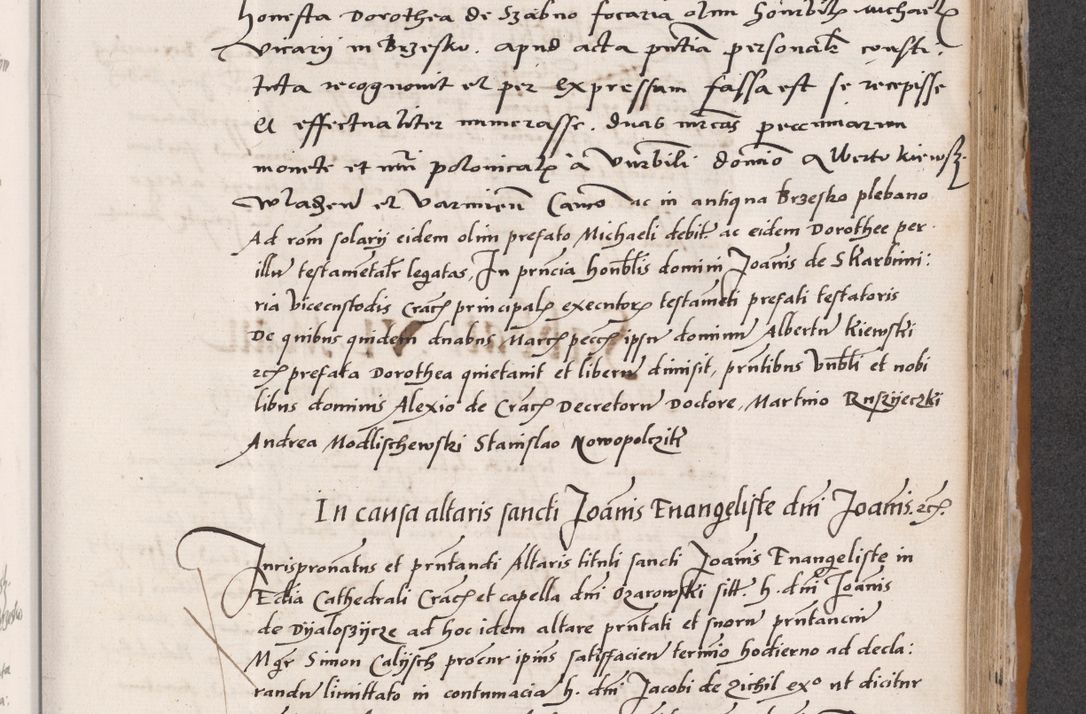 honesta Dorothea de Szabno focaria olim honrbilis Michaelis
Vicarij in Brzesko. apud acta pntia personalr consti:
tuta recognovit et per expressum fassa est se recepisse
et effectualiter numerasse. duas mrcas pecuniarum
monete et nuri polonicalis à Vnrbili domino Alberto Kiewsz:
et Varmien Canco ac in antiqua Brzesko plebano
Ad rom solarij eidem olim prefato Michaeli debit. ac eidem Dorothee per
illu testamentalr legatas, In prncia honblis domini Joanis de Skarbimi:
ria vicecustodis Crac principalis executoris testameti prefati testatoris
De quibus quidem duabus Marc pecc ipsu dominu Albertu Kiewski
etc prefata Dorothea quietauit et liberu dimisit, prntibus Vnbli et nobi
libus dominis Alexio de Crac Decretoru Doctore, Martino Ruszyeczki
Andrea Modlischewski Stanislao Nowopolczik
In causa altaris sancti Joanis Euangeliste dni Joanis. etc.
Jurispronatus et prntandi Altaris tituli sancti Joanis Euangeliste in
Ecclia Cathedrali Crac et capella dni Ozarowski sitt. h. dni Joanis
de Dyaloszycze ad hoc idem altare prntati et suoru prntanciu
Mgr Simon Calijsch procur ipius satisfacien termio hodierno ad decla:
randu limittato in contumacia h. dni Jacobi de Zichil exo ut dicitur